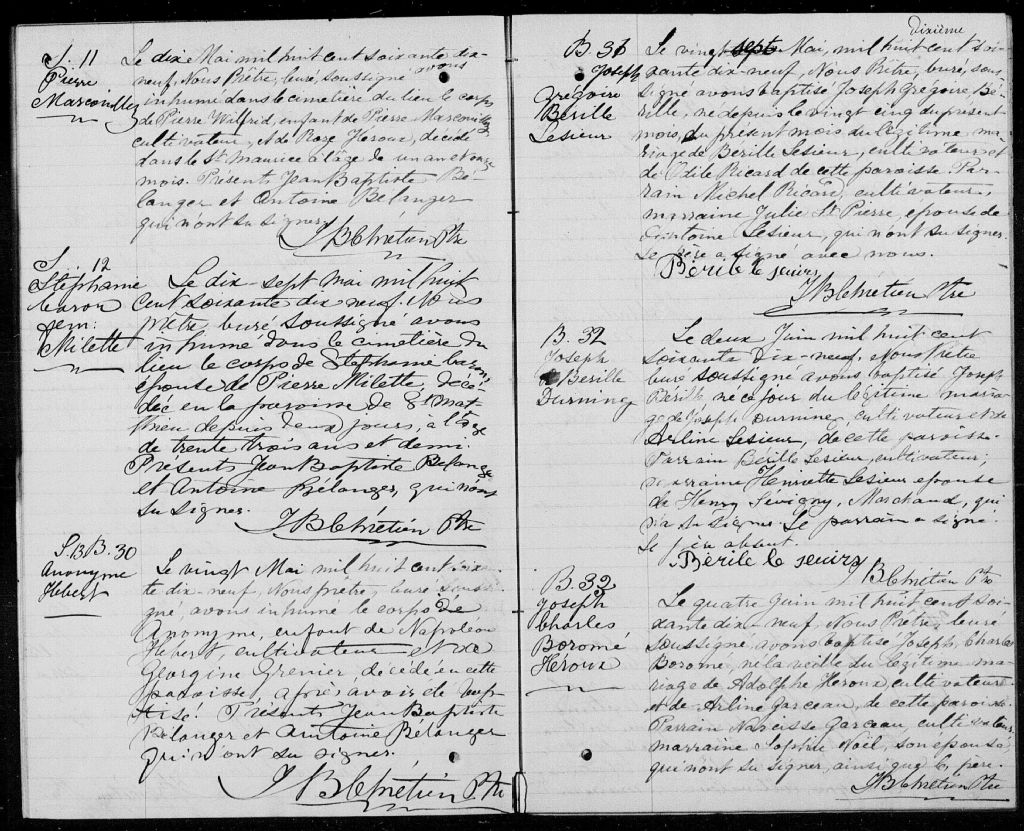 S. 11
Pierre
Marcouiller
Le dix Mai mil huit cent soixante dix-
neuf, Nous Prêtre, Curé, soussigné avons
inhumé dans le cimetière du lieu le corps
de Pierre Wilfrid, enfant de Pierre Marcouiller
cultivateur, et de Rose Héroux, décédé
dans le St Maurice à l'âge de un an et onze
mois. Présents Jean Baptiste Bé-
langer et Antoine Bélanger
qui n'ont su signer.
J B Chrétien Ptre
S. 12
Stéphanie
Caron
fem:
Milette
Le dix-sept mai mil huit
cent soixante dix neuf, Nous
prêtre, curé soussigné avons
inhumé dans le cimetière du
lieu le corps de Stéphanie Caron,
épouse de Pierre Milette, décé-
dée en la paroisse de St Mat
thieu depuis deux jours, à l'âge
de trente trois ans et demi.
Présents Jean Baptiste Bélanger
et Antoine Bélanger, qui n'ont
su signer.
J B Chrétien Ptre
S. 13 B. 30
Anonyme
Hebert
Le vingt Mai mil huit cent soixan
te dix-neuf, Nous prêtre, curé sous-
gné, avons inhumé le corps de
Anonyme, enfant de Napoléon
Hebert, cultivateur et de
Georgine Grenier, décédé en cette
paroisse, après avoir été bap-
tisé! Présents Jean Baptiste
Bélanger et Antoine Bélanger
qui n'ont su signer.
J B Chrétien Ptre
Dixième
B. 31
Joseph
Grégoire
Bérille
Lesieur
Le vingt sept Mai, mil huit cent soi-
xante dix-neuf, Nous Prêtre, curé, sous-
signé avons baptisé Joseph Grégoire Bé-
rille, né depuis le vingt cinq du présent
mois, du présent mois du légitime ma-
riage de Bérille Lesieur, cultivateur et
de Odile Ricard de cette paroisse. Par-
rain Michel Ricard, cultivateur,
marraine Julie St Pierre, épouse de
Antoine Lesieur, qui n'ont su signer.
Le père a signé avec nous.
Bérile le seuirs
J B Chrétien Ptre
B. 32
Joseph
Bérille
Durning
Le deux Juin mil huit cent
soixante dix-neuf, Nous Prêtre
curé soussigné avons baptisé Joseph
Bérille né ce jour du légitime maria
ge de Joseph Durning, cultivateur et de
Arline Lesieur, de cette paroisse.
Parrain Bérille Lesieur, cultivateur;
marraine Henriette Lesieur épouse
de Henry Sévigny, Marchand, qui
n'a su signer. Le parrain a signé.
Le père absent.
Bérile le seuirs
J B Chrétien Ptre
B. 33
Joseph
Charles
Boromé
Héroux
Le quatre Juin mil huit cent soi-
xante dix-neuf, Nous Prêtre, Curé
soussigné, avons baptisé Joseph, Charles
Boromé, né la veille du légitime ma-
riage de Adolphe Héroux, cultivateur
et de Arline Garceau, de cette paroisse.
Parrain Narcisse Garceau cultivateur,
marraine Noël, son épouse
qui n'ont su signer, ainsi que le père.
J B Chrétien Ptre